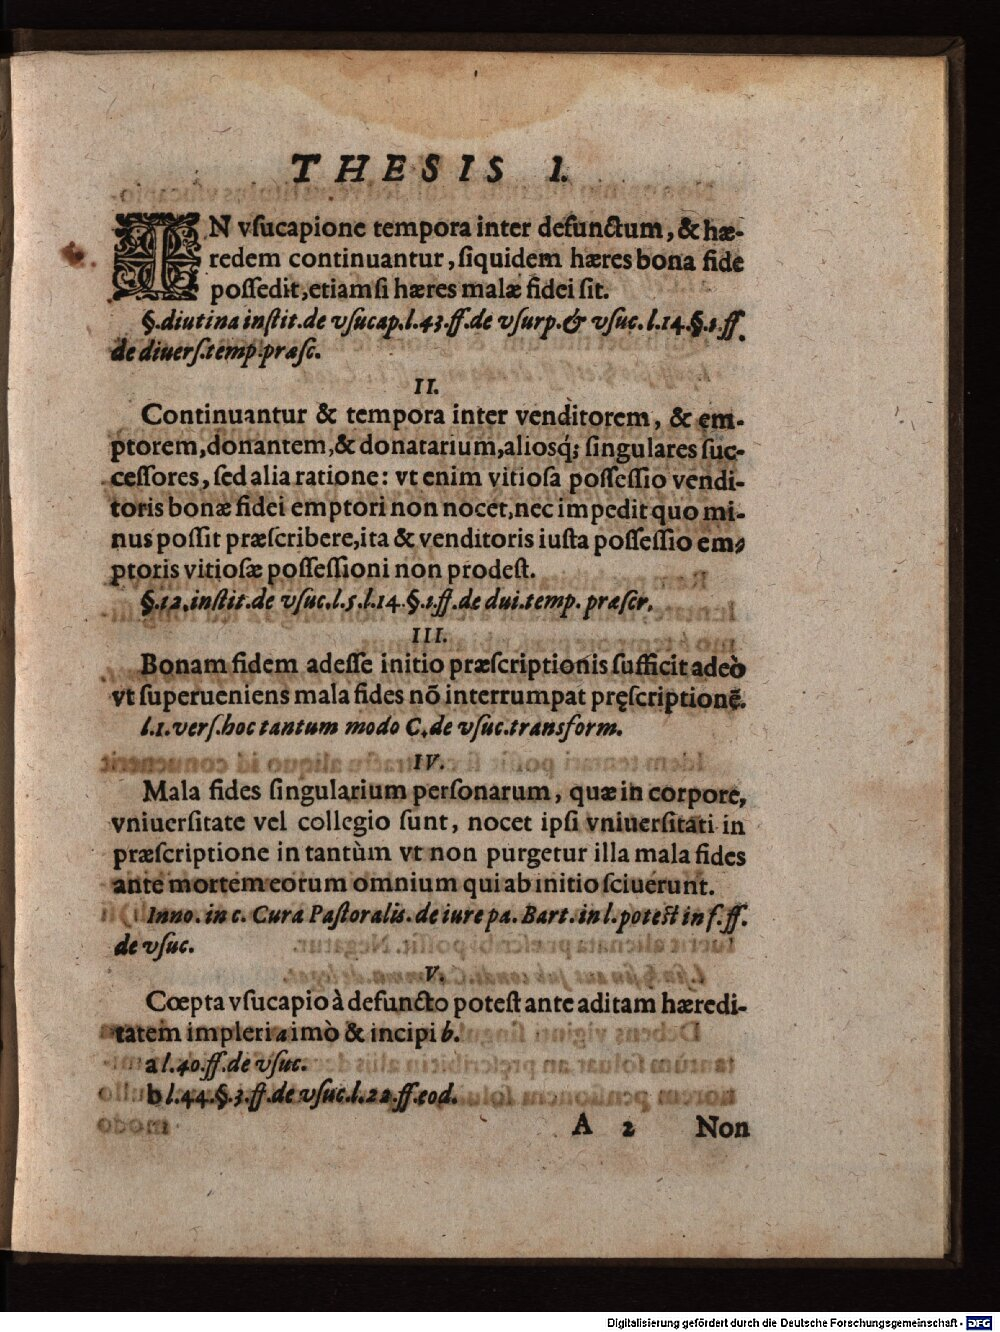 THESIS I.
IN vſucapione tempora inter defunctum, & hæ-
redem continuantur, ſiquidem hæres bona fide
poſſedit, etiamſi hæres malæ fidei ſit.
§. diutina inſtit. de vſucap. l. 43. ff. de vſurp. & vſuc. l. 14. §. 1. ff.
de diuerſ. temp. præſc.
II.
Continuantur & tempora inter venditorem, & em-
ptorem, donantem, & donatarium, alioſq; ſingulares ſuc-
ceſſores, ſed alia ratione: vt enim vitioſa poſſeſſio vendi-
toris bonæ fidei emptori non nocet, nec impedit quo mi-
nus poſſit præſcribere, ita & venditoris iuſta poſſeſſio em-
ptoris vitioſæ poſſeſſioni non prodeſt.
§. 12. inſtit. de vſuc. l. 5. l. 14. §. 1. ff. de dui. temp. præſcr.
III.
Bonam fidem adeſſe initio præſcriptionis ſufficit adeò
vt ſuperueniens mala fides nõ interrumpat pręſcriptionẽ.
l. 1. verſ. hoc tantum modo C. de vſuc. transform.
IV.
Mala fides ſingularium perſonarum, quæ in corpore,
vniuerſitate vel collegio ſunt, nocet ipſi vniuerſitati in
præſcriptione in tantùm vt non purgetur illa mala fides
ante mortem eorum omnium qui ab initio ſciuerunt.
Inno. in c. Cura Paſtoralis. de iure pa. Bart. in l. poteſt in f. ff.
de vſuc.
V.
Cœpta vſucapio à defuncto poteſt ante aditam hæredi-
tatem impleri a imò & incipi b.
a l. 40. ff. de vſuc.
b l. 44. §. 3. ff. de vſuc. l. 22. ff. eod.
A 2 Non
Digitalisierung gefördert durch die Deutsche Forschungsgemeinschaft - DFG